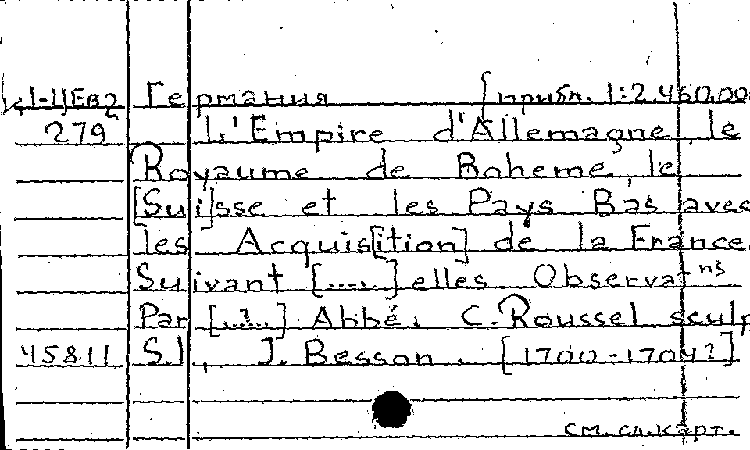 К1-ЦЕв2 Германия [прибл. 1:2.460.00
279 L'Empire d'Allemagne, le
Royaume de Boheme, le
[Sui]sse et les Pays Bas aves
les Acquis[ition] de la France
Suivant [....] elles Observatns
Par [....] Abbé. C. Roussel sculp
45811 S.l., J. Besson. [1700-1704?]
см. сл. карт.